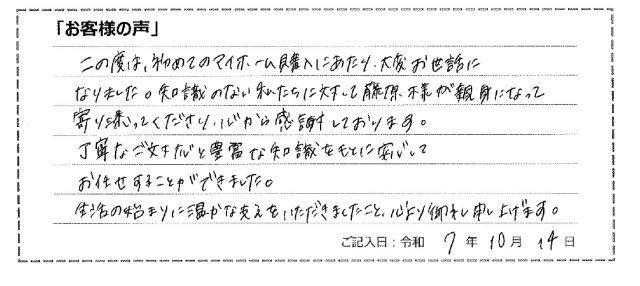 「お客様の声」
この度は、初めてのマイホーム購入にあたり、大変お世話に
なりました。知識のない私たちに対して藤原様が親身になって
寄り添ってくださり、心から感謝しております。
丁寧なご対応と豊富な知識をもとに安心して
お任せすることができました。
生活の始まりに温かな支えをいただきましたこと、心より御礼申し上げます。
ご記入日：令和 7 年 10 月 14 日